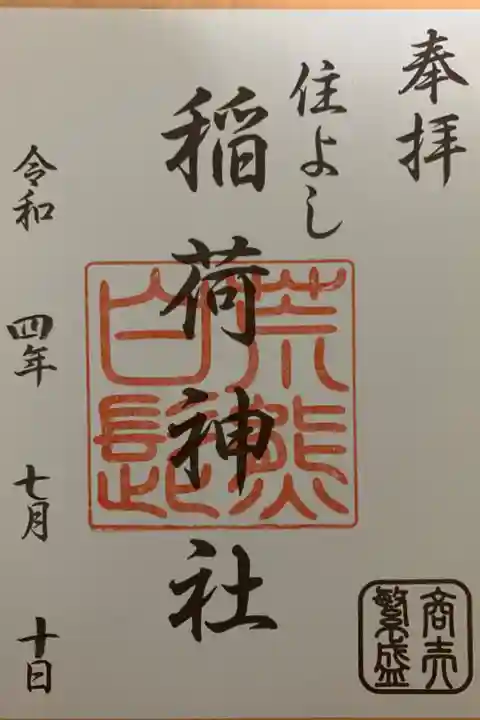 奉拝
住よし
稲荷神社
荒熊
白髭
令和 四年 七月 十日
商売
繁盛